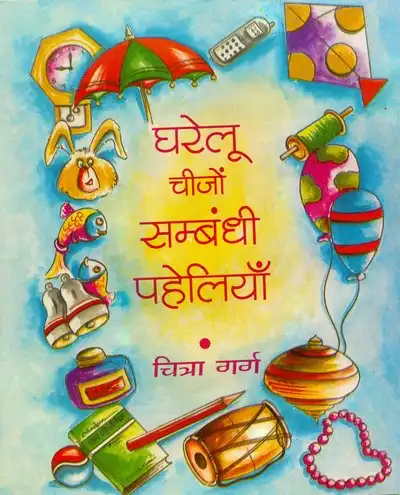 घरेलू
चीजों
सम्बंधी
पहेलियाँ
चित्रा गर्ग